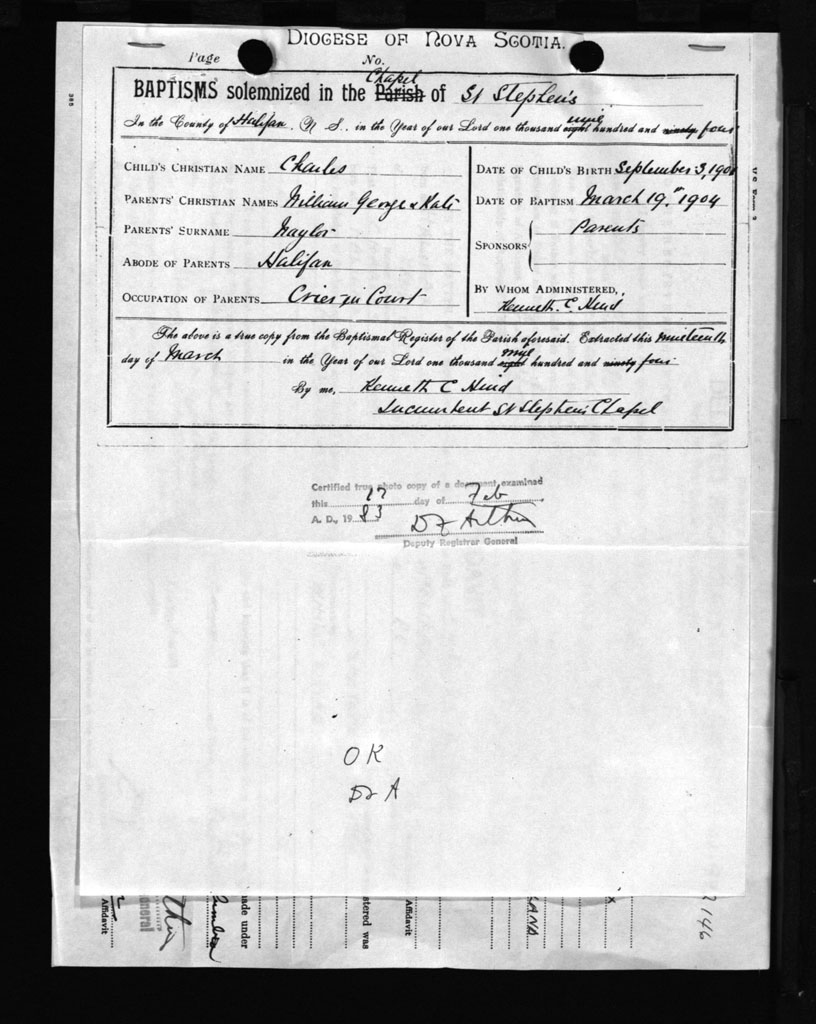 DIOCESE OF NOVA SCOTIA.
Page No.
Chapel
BAPTISMS solemnized in the Parish of St Stephen's
nine
In the County of Halifax, N. S., in the Year of our Lord one thousand eight hundred and ninety four
CHILD'S CHRISTIAN NAME Charles
PARENTS' CHRISTIAN NAMES William George & Kate
PARENTS' SURNAME Naylor
ABODE OF PARENTS Halifax
OCCUPATION OF PARENTS Crier in Court
DATE OF CHILD'S BIRTH September 3, 190
DATE OF BAPTISM March 19th 1904
SPONSORS Parents
BY WHOM ADMINISTERED,
Kenneth C. Hind
The above is a true copy from the Baptismal Register of the Parish aforesaid. Extracted this nineteenth
nine
day of March in the Year of our Lord one thousand eight hundred and ninety four
By me, Kenneth C Hind
Incumbent St Stephen's Chapel
Certified true photo copy of a document examined
this 17 day of Feb
A. D., 19 83
Deputy Registrar General
OK
2146
Affidavit
eneral
made under
stered was
Affidavit
LAND
X